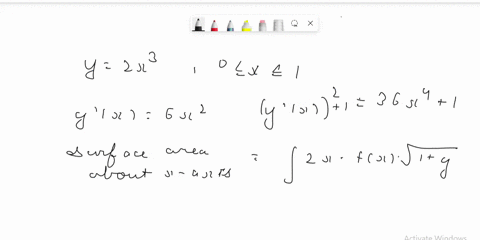 y = 2x³ , 0 ≤ x ≤ 1
y'(x) = 6x² (y'(x))² + 1 = 36x⁴ + 1
surface area about x-axis = ∫ 2x · f(x) · √1+y
Activate Windows